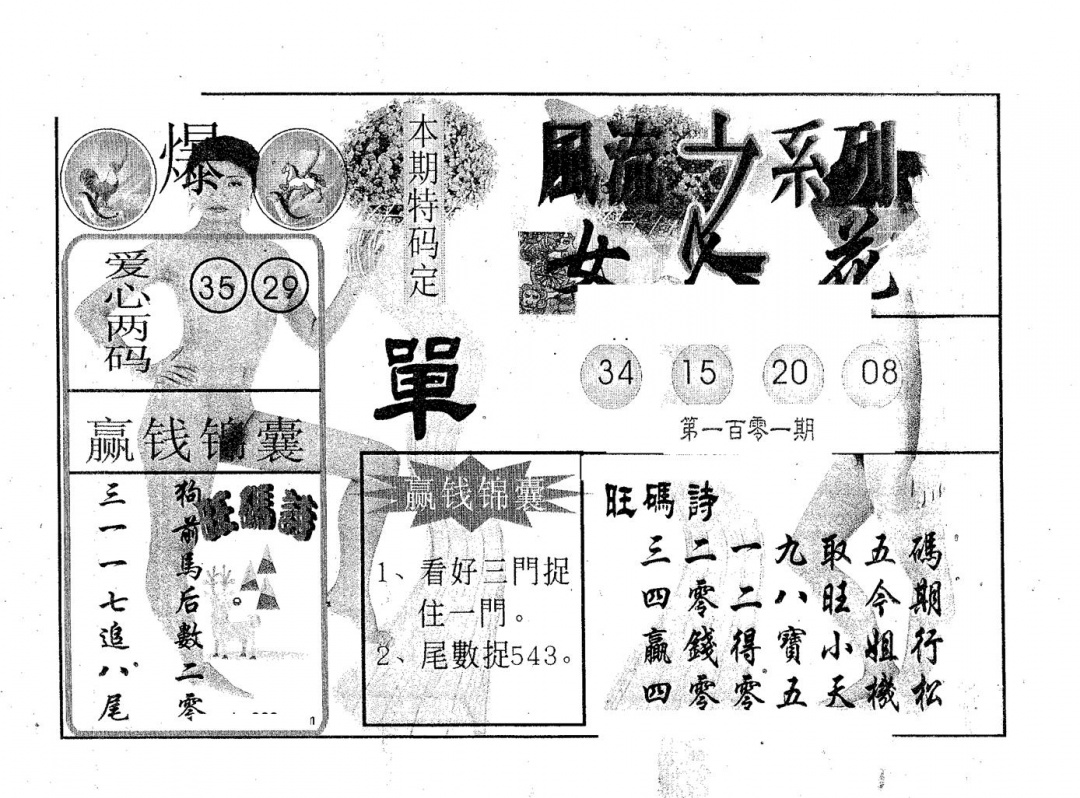 爆
爱心两码
35 29
赢钱锦囊
狗前馬后數二零
三一一七追八尾
旺碼詩
本期特码定
單
赢钱锦囊
1、看好三門捉
住一門。
2、尾數捉543。
風流之系列
女人花
34 15 20 08
第一百零一期
旺碼詩
碼期行松
五今姐機
取旺小天
九八寶五
一二得零
二零錢零
三四贏四